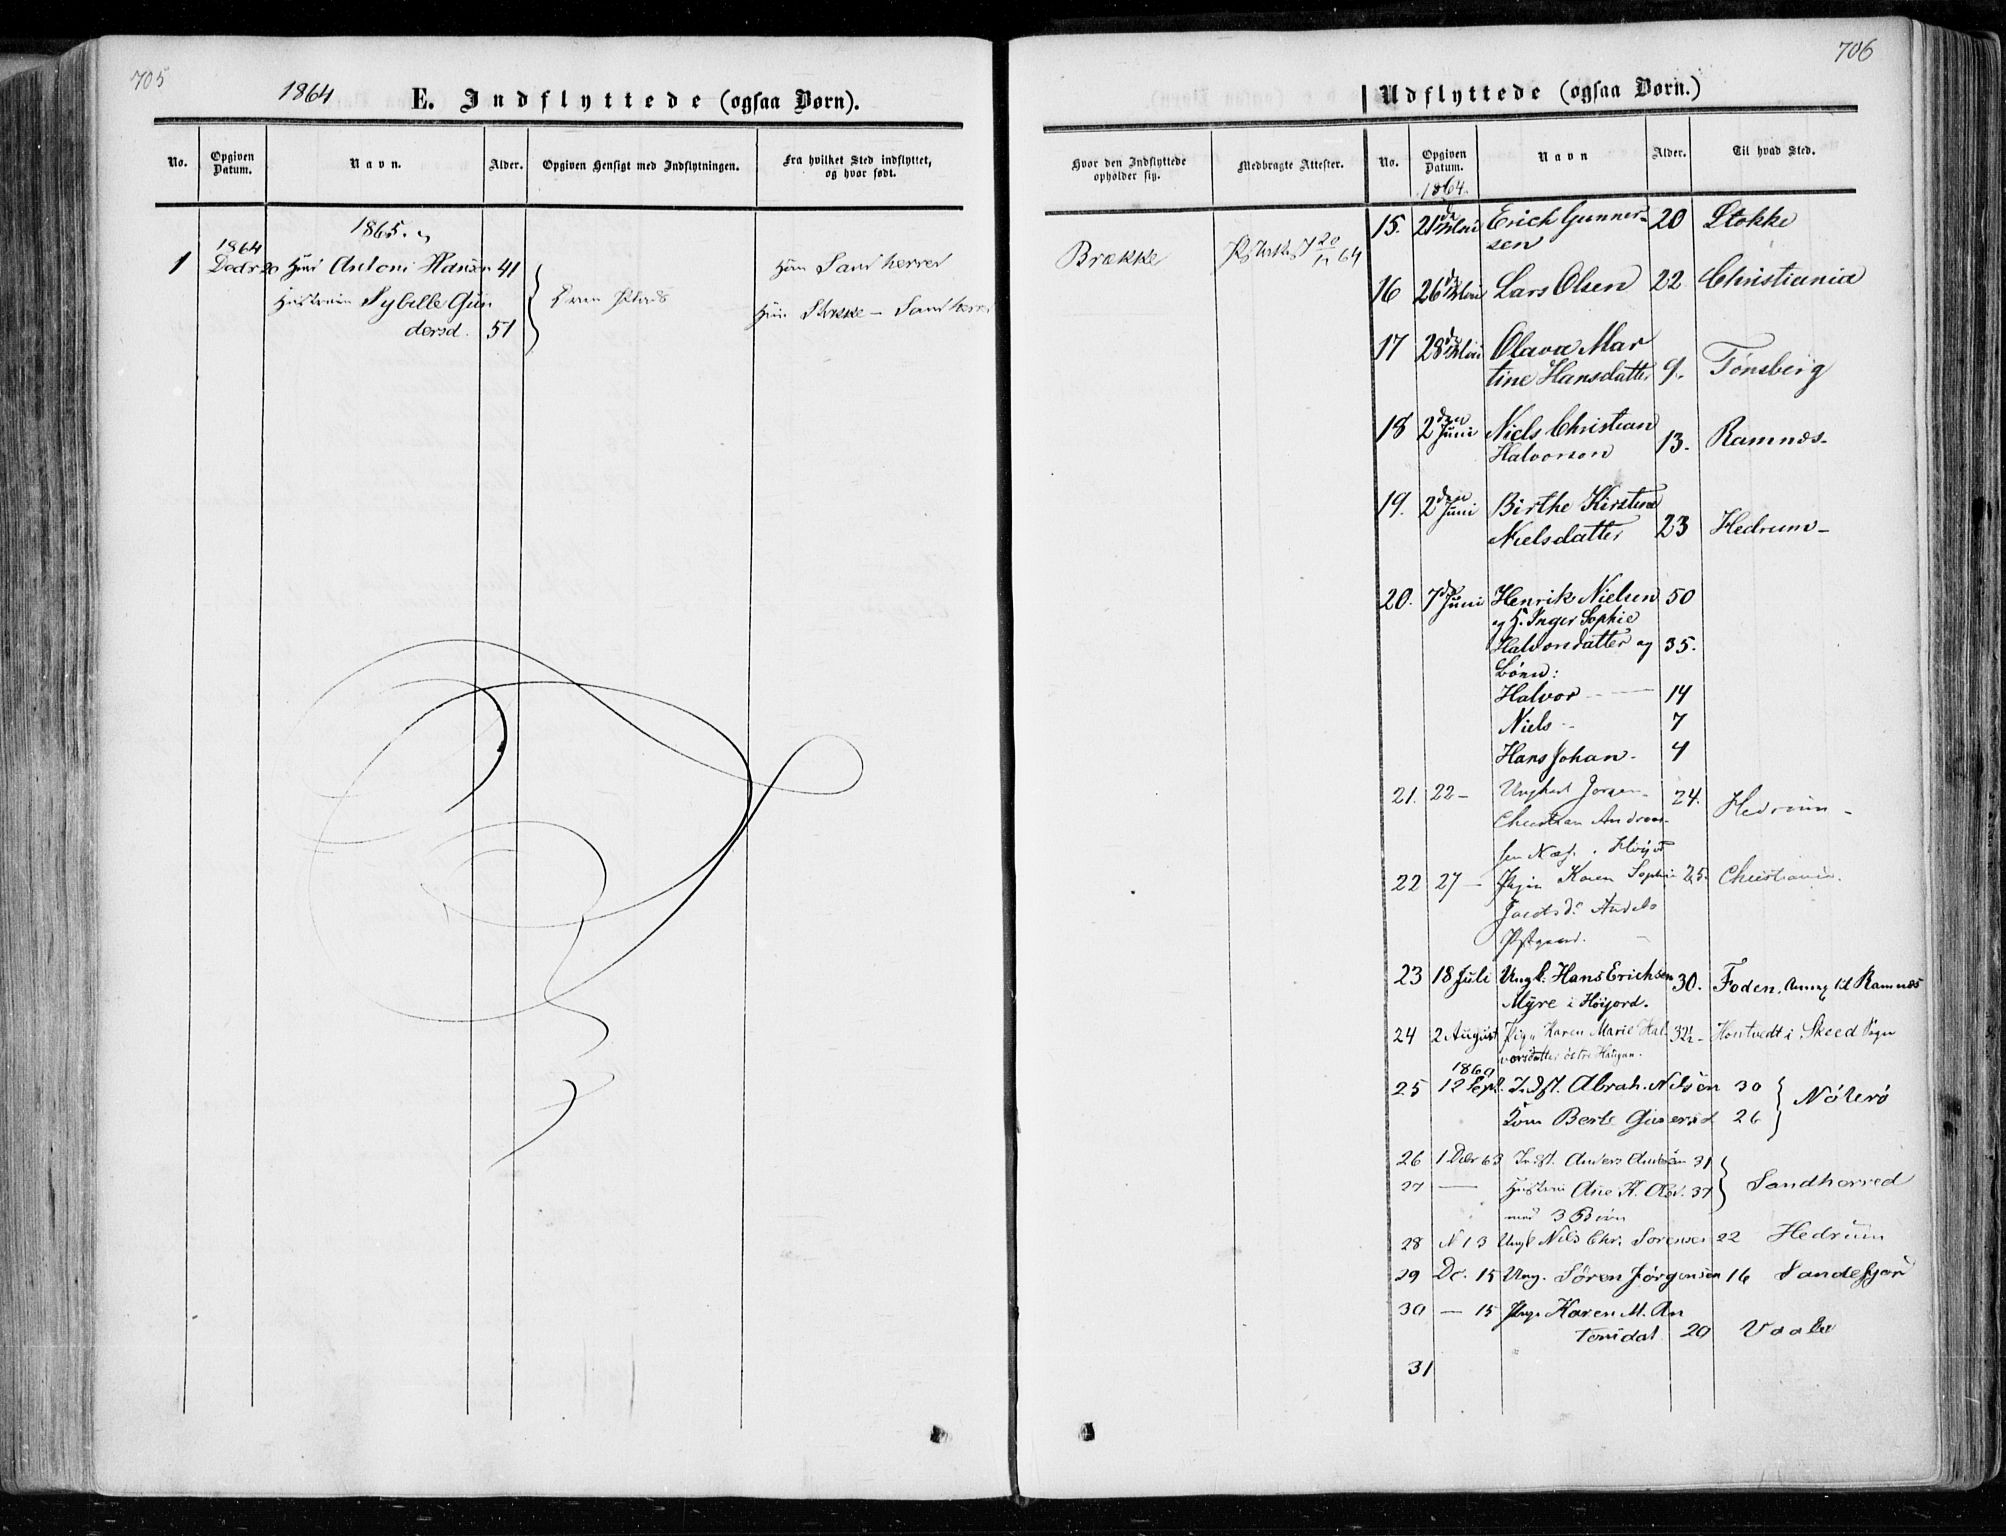 705
1864
E. Indflyttede (ogsaa Børn).
No.
Opgiven Datum.
Navn.
Alder.
Opgiven Hensigt med Indflytningen.
Fra hvilket Sted indflyttet, og hvor født.
1865.
1864
1 Decbr Antoni Hansen 41 Sandherred
Hustruen Sybille Gun
dersd. 51
Sandherred
706
Udflyttede (ogsaa Børn.)
Hvor den Indflyttede opholder sig.
Medbragte Attester.
No.
Opgiven Datum.
Navn
Alder.
Til hvad Sted.
1864.
Brække
20/12 64
15. 21de Mai Erich Gunner- 20 Stokke
sen
16 26de Mai Lars Olsen 22 Christiania
17 28de Mai Olava Mar
tine Hansdatter 9. Tønsberg
18 2den Juni Niels Christian
Halvorsen 13. Ramnæs-
19. 2den Juni Birthe Kirstine
Nielsdatter 23 Hedrum-
20. 7de Juni Henrik Nielsen 50
og H. Inger Sophie
Halvorsdatter og 35.
Børn:
Halvor 14
Niels 7
Hans Johan. 4
21. 22- Ungkarl Jørgen 24. Hedrum-
Christian Andreas-
sen Næs. Høijord
22 27- Pigen Karen Sophie 25. Christiania.
23 18 Juli Ungk. Hans Erichsen 30. Foden, Annex til Ramnæs
Myre i Høijord.
24 2 August Pige Karen Marie Hal 32½- Hontvedt i Skeed Sogn
vorsdatter østre Haugan.
1864
25 12 Sept. Indst. Abrah. Nilsen 30
Nøterø
Kone Berte Gunersd 26
26 1 Dcbr 63 Indst. Anders Andersen 31
Sandherred
27 — Hustrue Ane K. Olsd. 37
med 3 Børn
28 N 13 Ungk Nils Chr. Sørensen 22 Hedrum
29 Dc. 15 Ung. Søren Jørgensen 16 Sandefjor
30 — 15 Pige Karen M. An
tonidat. 20 Vaale
31